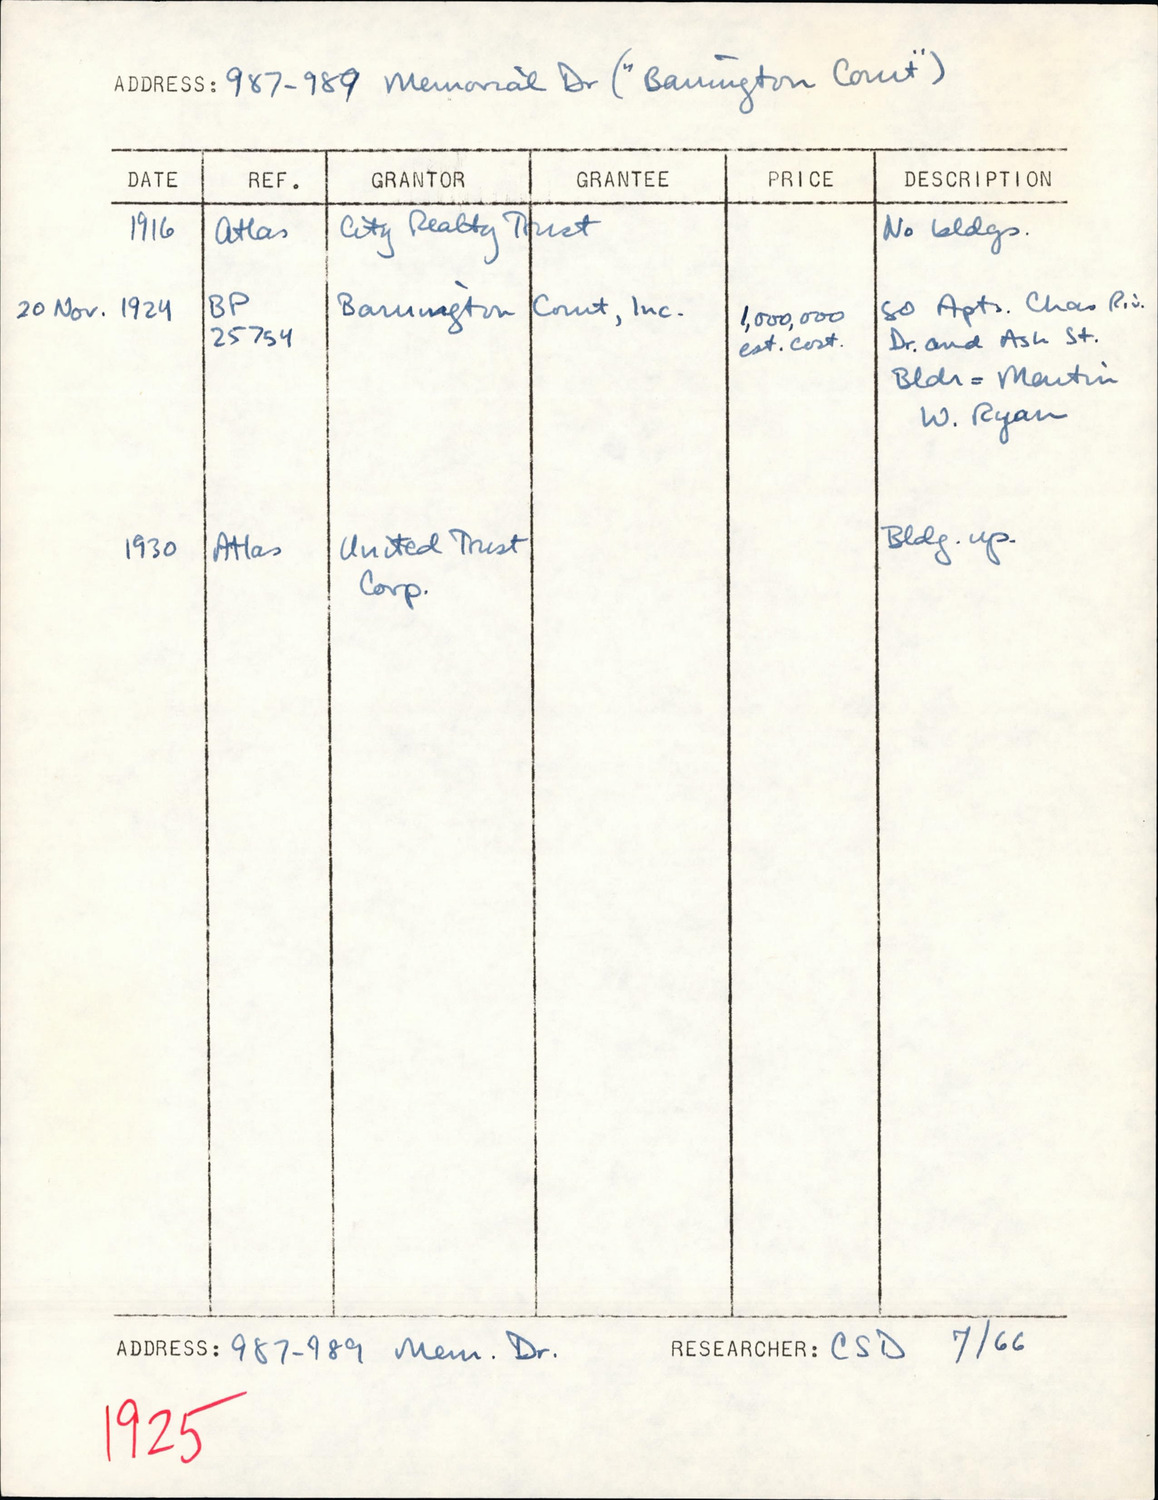 ADDRESS: 987-989 Memorial Dr ("Barrington Court")
DATE REF. GRANTOR GRANTEE PRICE DESCRIPTION
1916 Atlas City Realty Trust No bldgs.
20 Nov. 1924 BP Barrington Court, Inc. 1,000,000 80 Apts. Chas Riv.
25754 est. cost. Dr. and Ash St.
Bldr = Martin
W. Ryan
1930 Atlas United Trust Bldg. up.
Corp.
ADDRESS: 987-989 Mem. Dr. RESEARCHER: CSD 7/66
1925